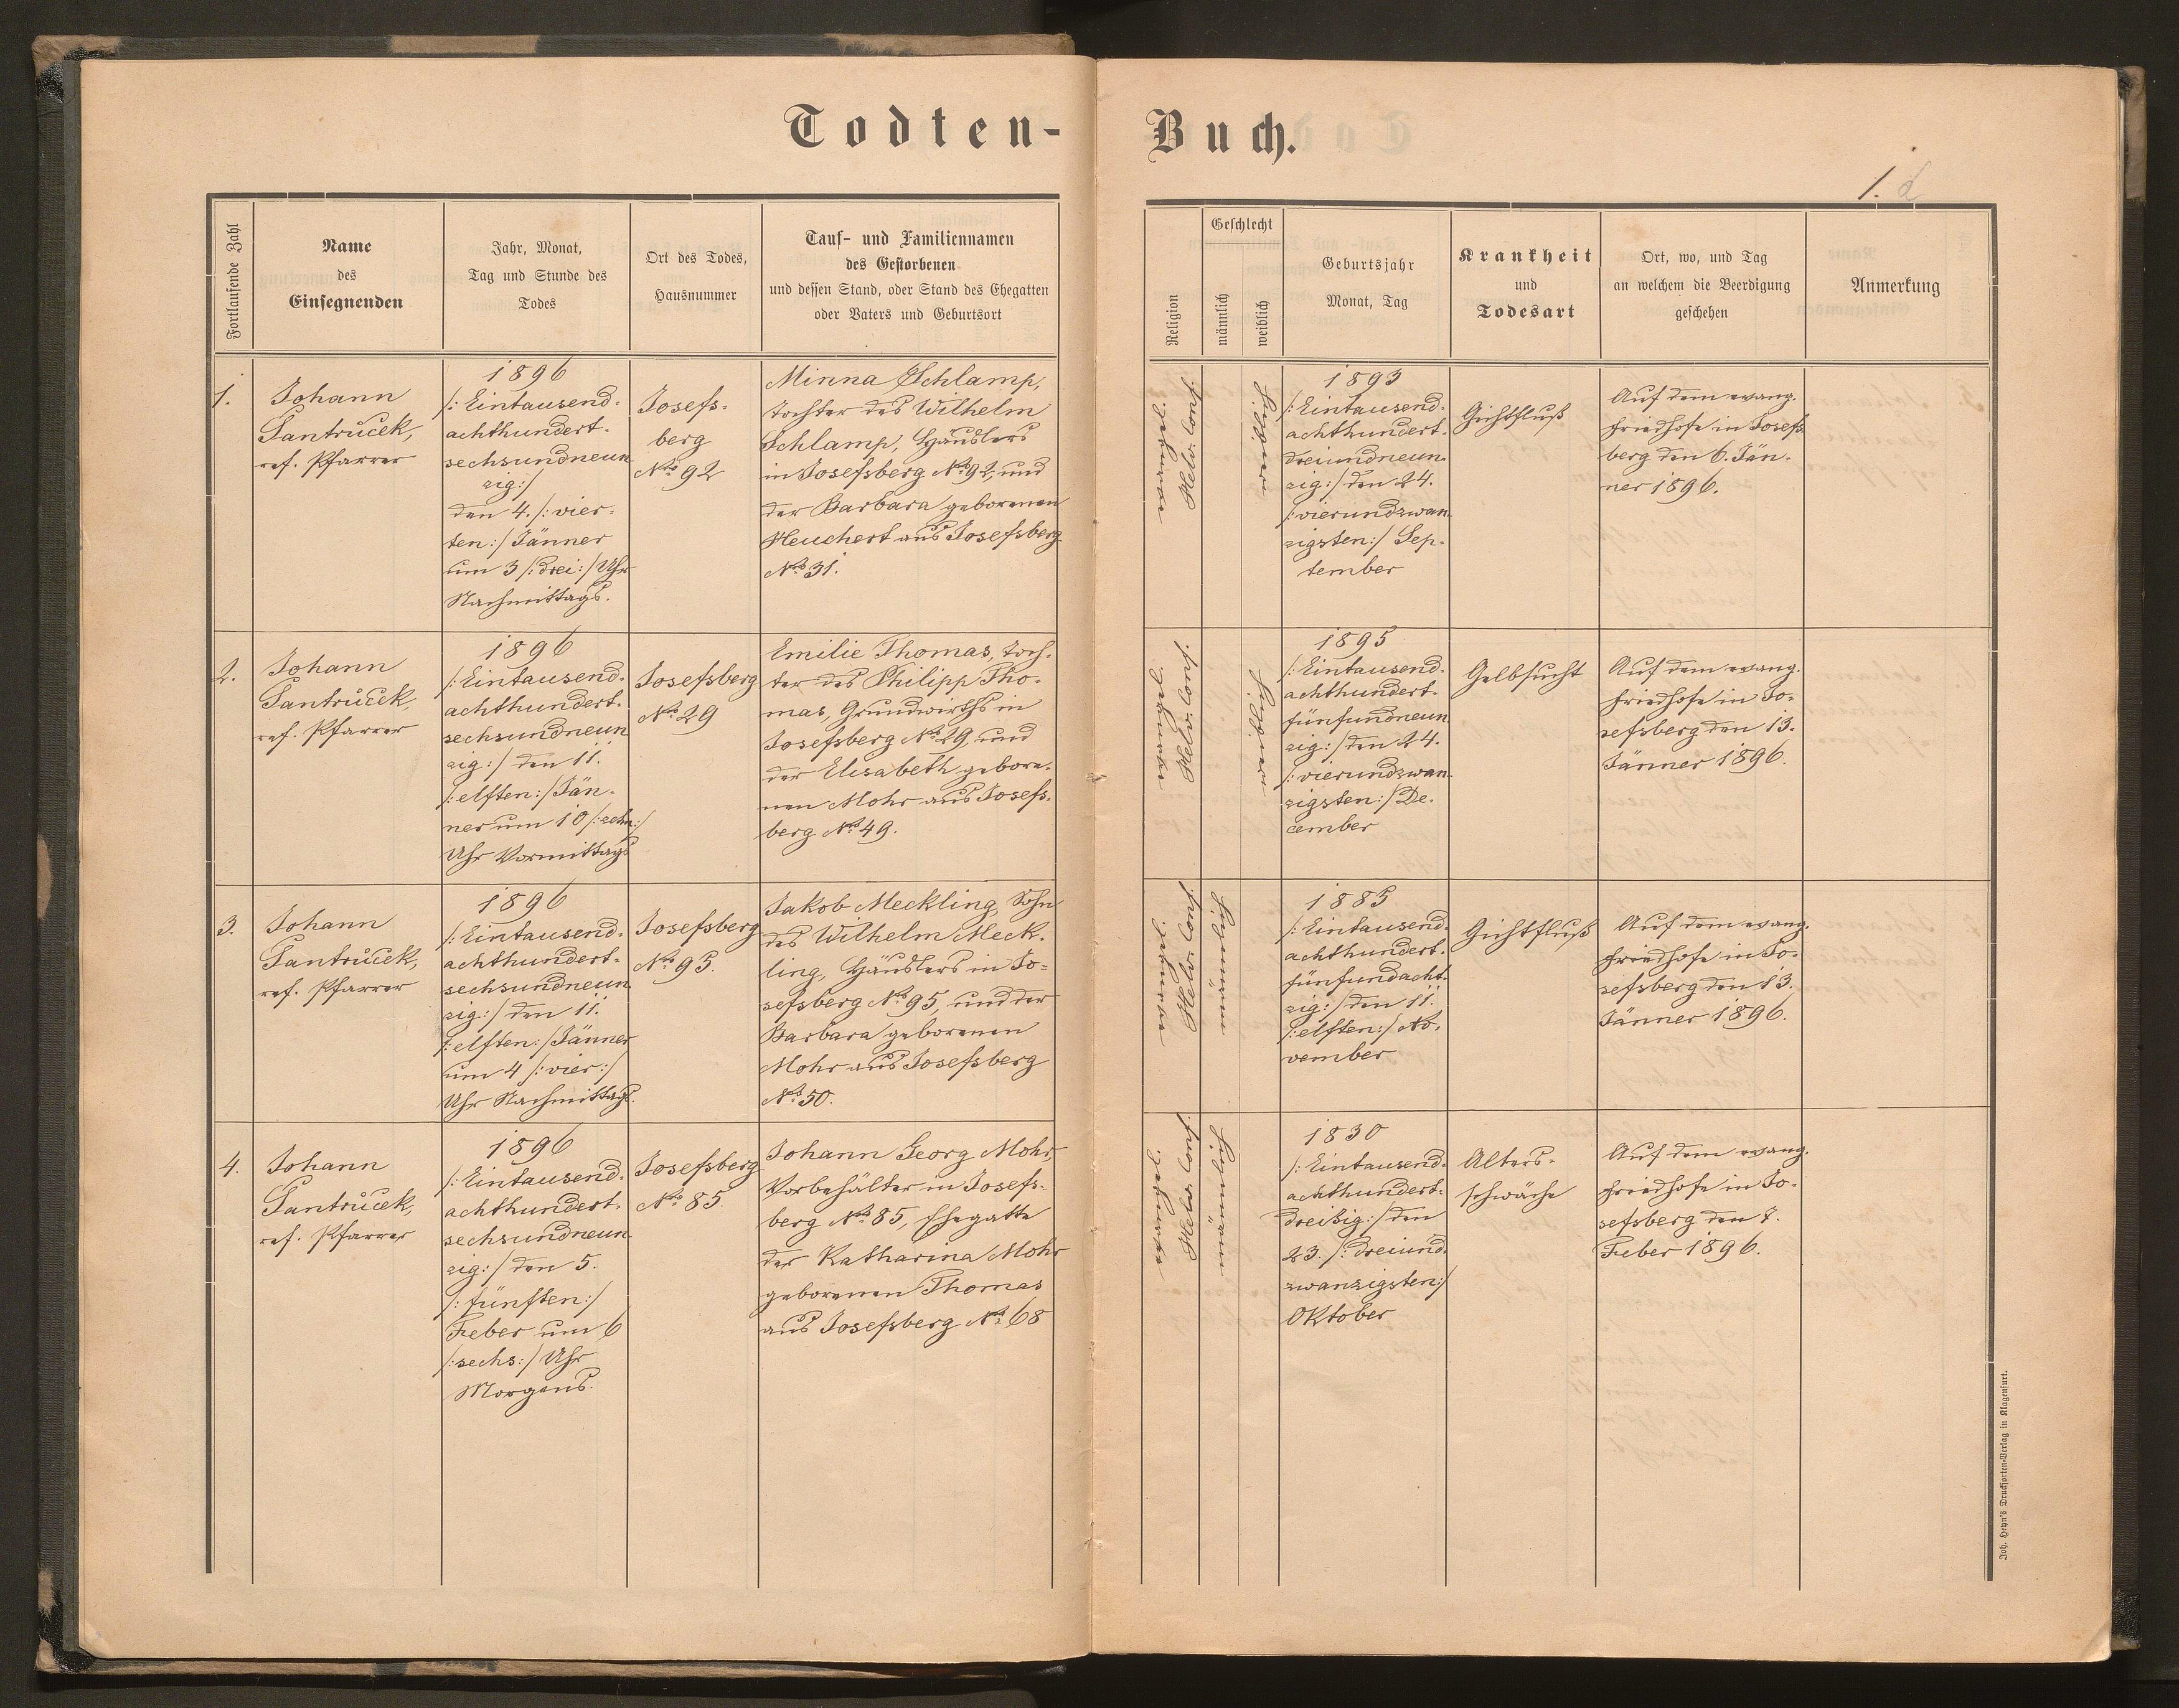 Todten-
Buch.
1. d
Fortlaufende Zahl
Name
des
Einsegnenden
Jahr, Monat,
Tag und Stunde des
Todes
Ort des Todes,
Hausnummer
Tauf- und Familiennamen
des Gestorbenen
und dessen Stand, oder Stand des Ehegatten
oder Vaters und Geburtsort
Religion
Geschlecht
männlich
weiblich
Geburtsjahr
Monat, Tag
Krankheit
und
Todesart
Ort, wo, und Tag
an welchem die Beerdigung
geschehen
Anmerkung
1.
Johann
Jantruček,
ref. Pfarrer
1896
/: Eintausend-
achthundert-
sechsundneun
zig :/
den 4. /: vier-
ten :/ Jänner
um 3 /: drei :/ Uhr
Nachmittags.
Josefs-
berg
No. 92
Minna Schlamp,
Tochter des Wilhelm
Schlamp, Häuslers
in Josefsberg No. 92, und
der Barbara geborenen
Heuchert aus Josefsberg
No. 31.
evangel.
Helv. Conf.
weiblich
1893
/: Eintausend-
achthundert-
dreiundneun-
zig :/ den 24.
/: vierundzwan-
zigsten :/ Sep-
tember
Gichtfluß
Auf dem evang.
Friedhofe in Josefs
berg den 6. Jän-
ner 1896.
2.
Johann
Jantruček,
ref. Pfarrer
1896
/: Eintausend-
achthundert-
sechsundneun
zig :/ den 11.
/: elften :/ Jän-
ner um 10 /: zehn :/
Uhr Vormittags
Josefsberg
No. 29
Emilie Thomas, Toch-
ter des Philipp Tho-
mas, Grundwirths in
Josefsberg No. 29, und
der Elisabeth gebore-
nen Mohr aus Josefs-
berg No. 49.
evangel.
Helv. Conf.
weiblich
1895
/: Eintausend-
achthundert-
fünfundneun
zig :/ den 24.
/: vierundzwan-
zigsten :/ De-
cember
Gelbsucht
Auf dem evang.
Friedhofe in Jo-
sefsberg den 13.
Jänner 1896.
3.
Johann
Jantruček,
ref. Pfarrer
1896
/: Eintausend-
achthundert-
sechsundneun
zig :/ den 11.
/: elften :/ Jänner
um 4 /: vier :/
Uhr Nachmittags.
Josefsberg
No. 95.
Jakob Meckling, Sohn
des Wilhelm Meck-
ling, Häuslers in Jo-
sefsberg No. 95, und der
Barbara geborenen
Mohr aus Josefsberg
No. 50.
evangel.
Helv. Conf.
männlich
1885
/: Eintausend-
achthundert-
fünfundacht-
zig :/ den 11.
/: elften :/ No-
vember
Gichtfluß
Auf dem evang.
Friedhofe in Jo-
sefsberg den 13.
Jänner 1896.
4.
Johann
Jantruček,
ref. Pfarrer
1896
/: Eintausend-
achthundert-
sechsundneun
zig :/ den 5.
/: fünften :/
Feber um 6
/: sechs :/ Uhr
Morgens.
Josefsberg
No. 85.
Johann Georg Mohr,
Vorbehälter in Josefs-
berg No. 85, Ehegatte
der Katharina Mohr
geborenen Thomas
aus Josefsberg No. 68
evangel.
Helv. Conf.
männlich
1830
/: Eintausend-
achthundert-
dreißig :/ den
23. /: dreiund-
zwanzigsten :/
Oktober
Alters-
schwäche
Auf dem evang.
Friedhofe in Jo-
sefsberg den 7.
Feber 1896.
Joh. Heyn's Drucksorten-Verlag in Klagenfurt.